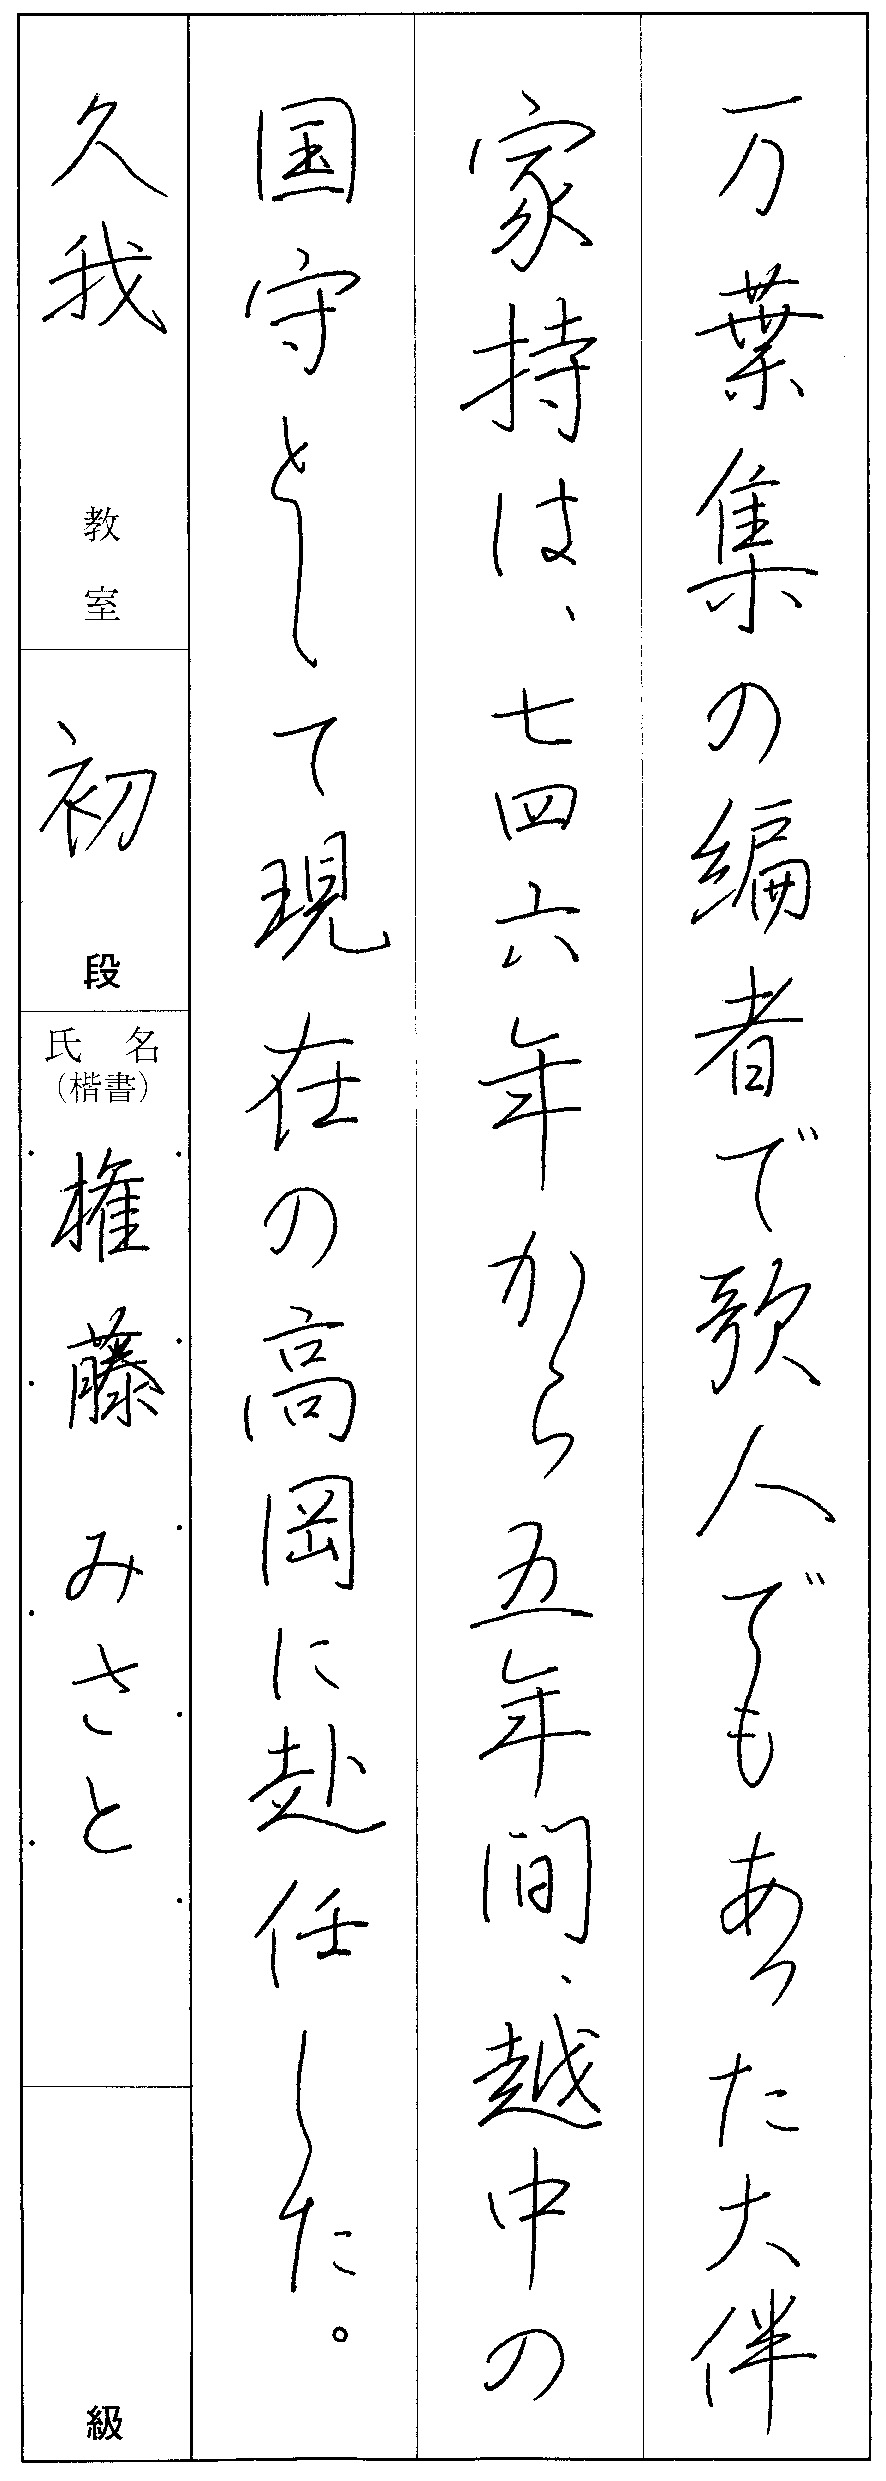 万葉集の編者で歌人でもあった大伴
家持は、七四六年から五年間、越中の
国守として現在の高岡に赴任した。
久我 教室
初 段
氏名
(楷書)
権藤 みさと
級